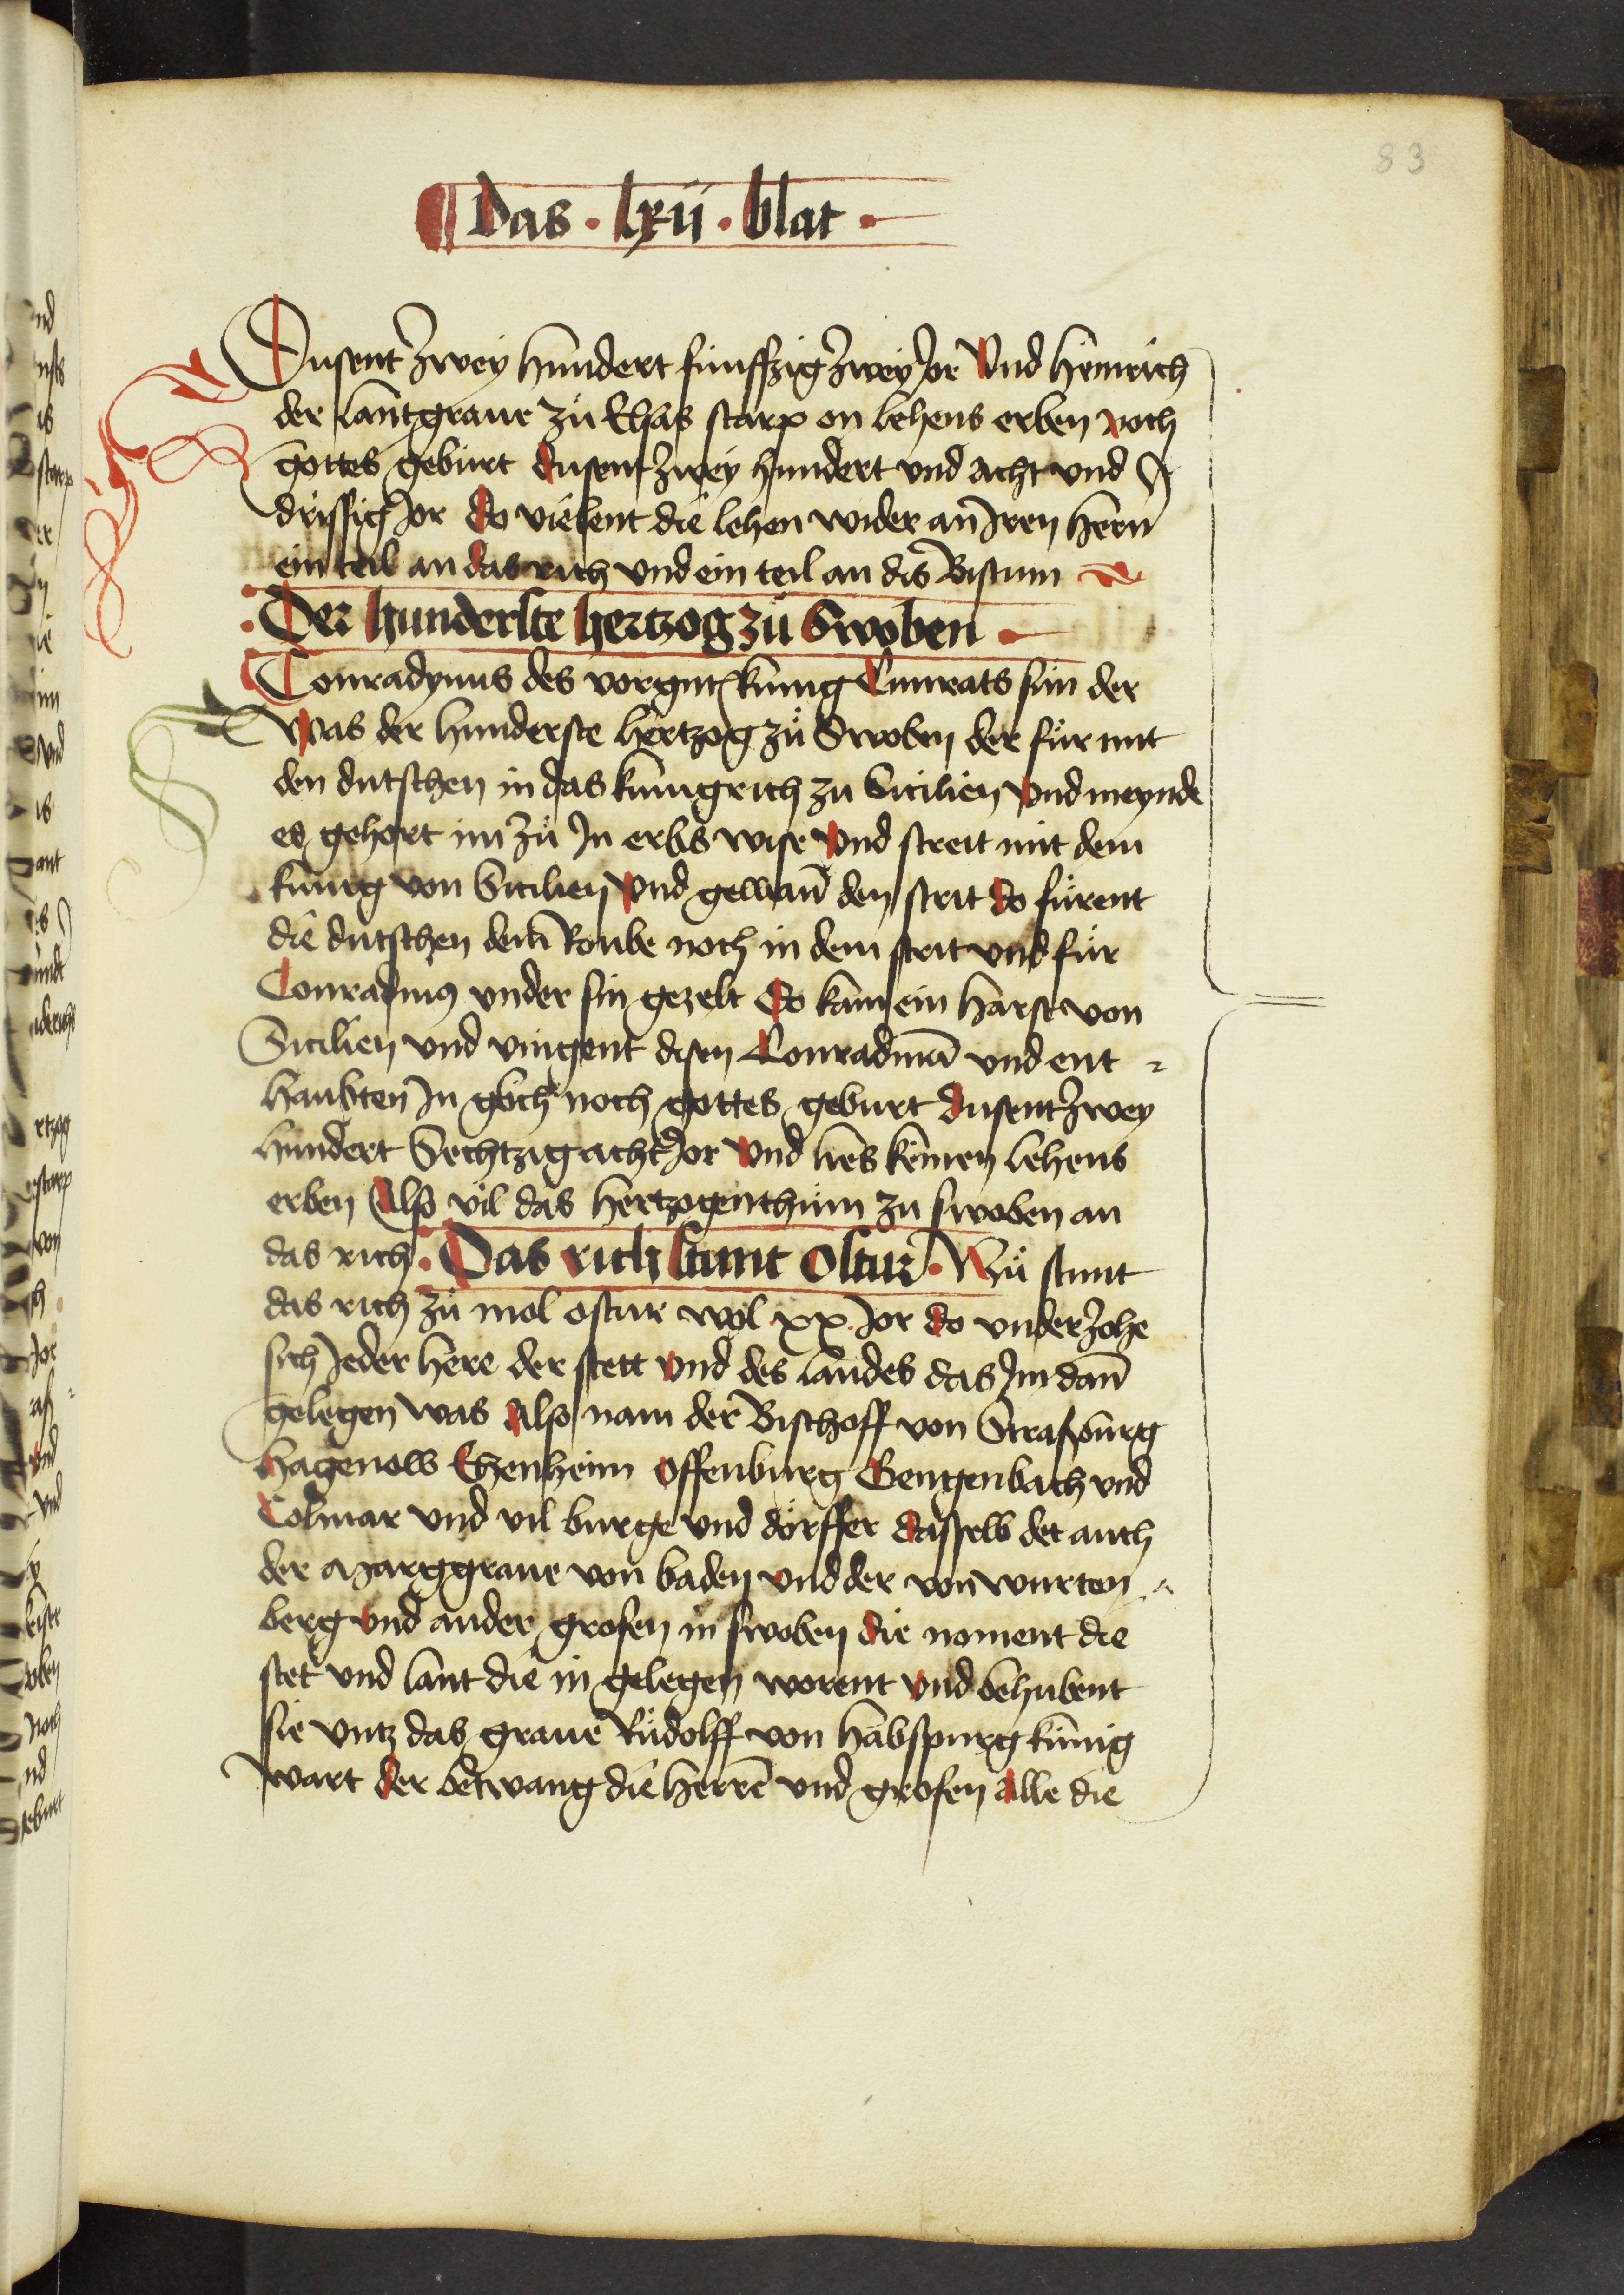 83
Das · lxii · blat ·
Dusent zwey hundert funffzig zwey Jor Und heinrich
der lantgraue zů Elsas starp on lehens erben noch
gottes geburt dusent zwey hundert und acht und
drissig Jor do vielent die lehen wider an Iren hern̄
ein teil an das rich und ein teil an dis Bistum
· Der hunderste hertzog zů Swoben ·
Conradynus des vorgnt̄ kunig Cunrats sun der
Was der hunderste hertzog zů Swoben der fůr mit
den dutschen in das kunigrich zu Sicilien Vnd meynde
es gehort im zů In erbs wise Vnd streit mit dem
kunig von Sicilien Vnd gewan̄ den strit do fůrent
die dutschen dem Roube noch in dem strit und fůr
Conradinus vnder sin gezelt Do kam ein harst von
Sicilien und vingent disen Conradinū und ent
haubten In noch gottes geburt dusent zwey
hundert Sechtzig acht Jor Vnd lies keinen lehens
erben Also vil das hertzogenthům zu swoben an
das rich · Das rich stunt ostur · Nů stunt
das rich zů mol ostur wol xx Jor do vnderzohe
sich Jeder here der stett Vnd des landes das Im dan̄
gelegen was Also nam der Bischoff von Straspurg
hagenow Ehenheim Offenburg Gengenbach und
Colmar Vnd vil burge und dörffer dasselb det auch
der Marggraue von baden vnd der von wurten
berg Vnd ander grofen in swoben die noment die
stet und lant die in gelegen worent Vnd behubent
sie untz das graue Růdolff von habspurg kunig
wart der betwang die herrē und grofen alle die